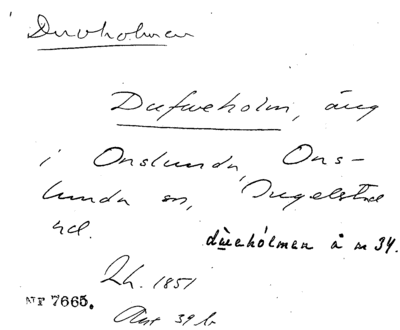 Duvholmen
Dufweholm, äng
i Onslunda, Ons-
lunda sn, Ingelstad
hd.
dùehólmen å m 34.
Lh. 1851
NF 7665.
39 b